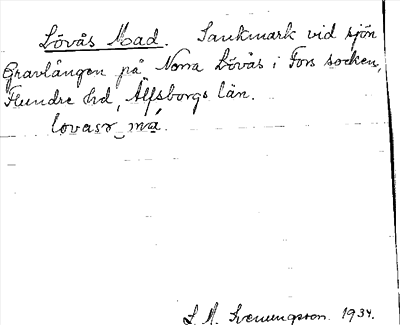 Lövås Mad. Sankmark vid sjön
Gravlången på Norra Lövås i Fors socken,
Flundre hd, Älfsborgs län.
lovasɤ‿má.
L. M. Svenungsson. 1934.